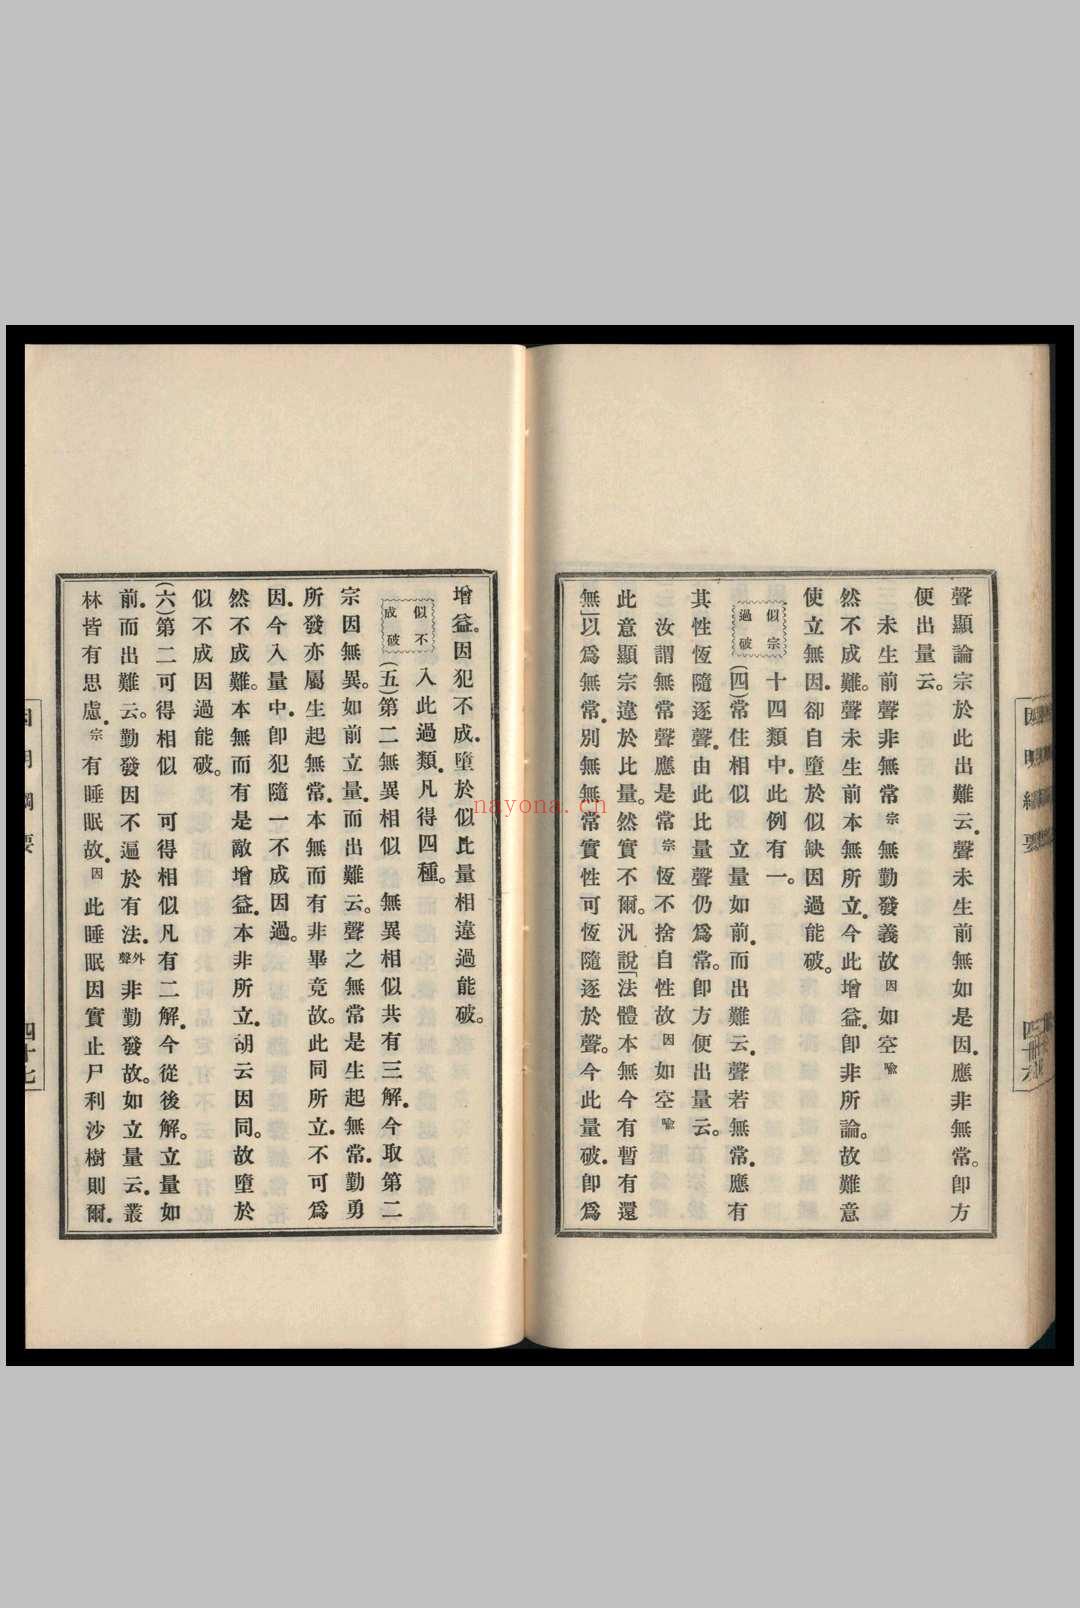 聲顯論宗於此出難云。聲未生前無如是因。應非無常。卽方
便出量云。
未生前聲非無常宗無勤發義故因如空喩
然不成難。聲未生前本無所立。今此增益。卽非所論。故難意
使立無因。卻自墮於似缺因過能破。
似宗過破
十四類中。此例有一。
(四)常住相似 立量如前。而出難云。聲若無常。應有
其性恆隨逐聲。由此比量聲仍爲常。卽方便出量云。
汝謂無常聲應是常宗恆不捨自性故因如空喩
此意顯宗違於比量。然實不爾。汎說「法體本無今有暫有還
無」以爲無常。別無無常實性可恆隨逐於聲。今此量破。卽爲
增益。因犯不成。墮於似比量相違過能破。
似不成破
入此過類。凡得四種。
(五)第二無異相似 無異相似共有三解。今取第二
宗因無異。如前立量。而出難云。聲之無常。是生起無常。勤勇
所發亦屬生起無常。本無而有非畢竟故。此同所立。不可爲
因。今入量中。卽犯隨一不成因過。
然不成難。本無而有是敵增益。本非所立。胡云因同。故墮於
似不成因過能破。
(六)第二可得相似 可得相似凡有二解。今從後解。立量如
前。而出難云。勤發因不遍於有法。外聲非勤發故。如立量云。叢
林皆有思慮。宗有睡眠故。因此睡眠因實止尸利沙樹則爾。
四十七
nayona.cn